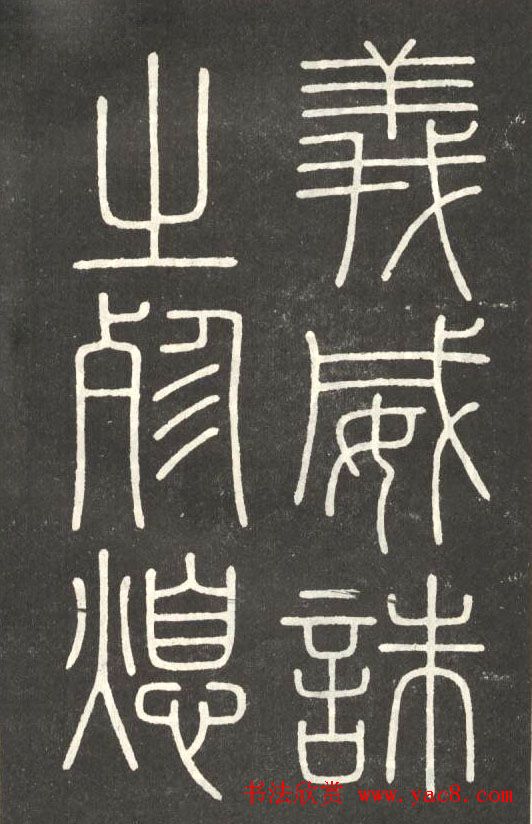 義威誅
之殄熄
书法欣赏 www.yac8.com